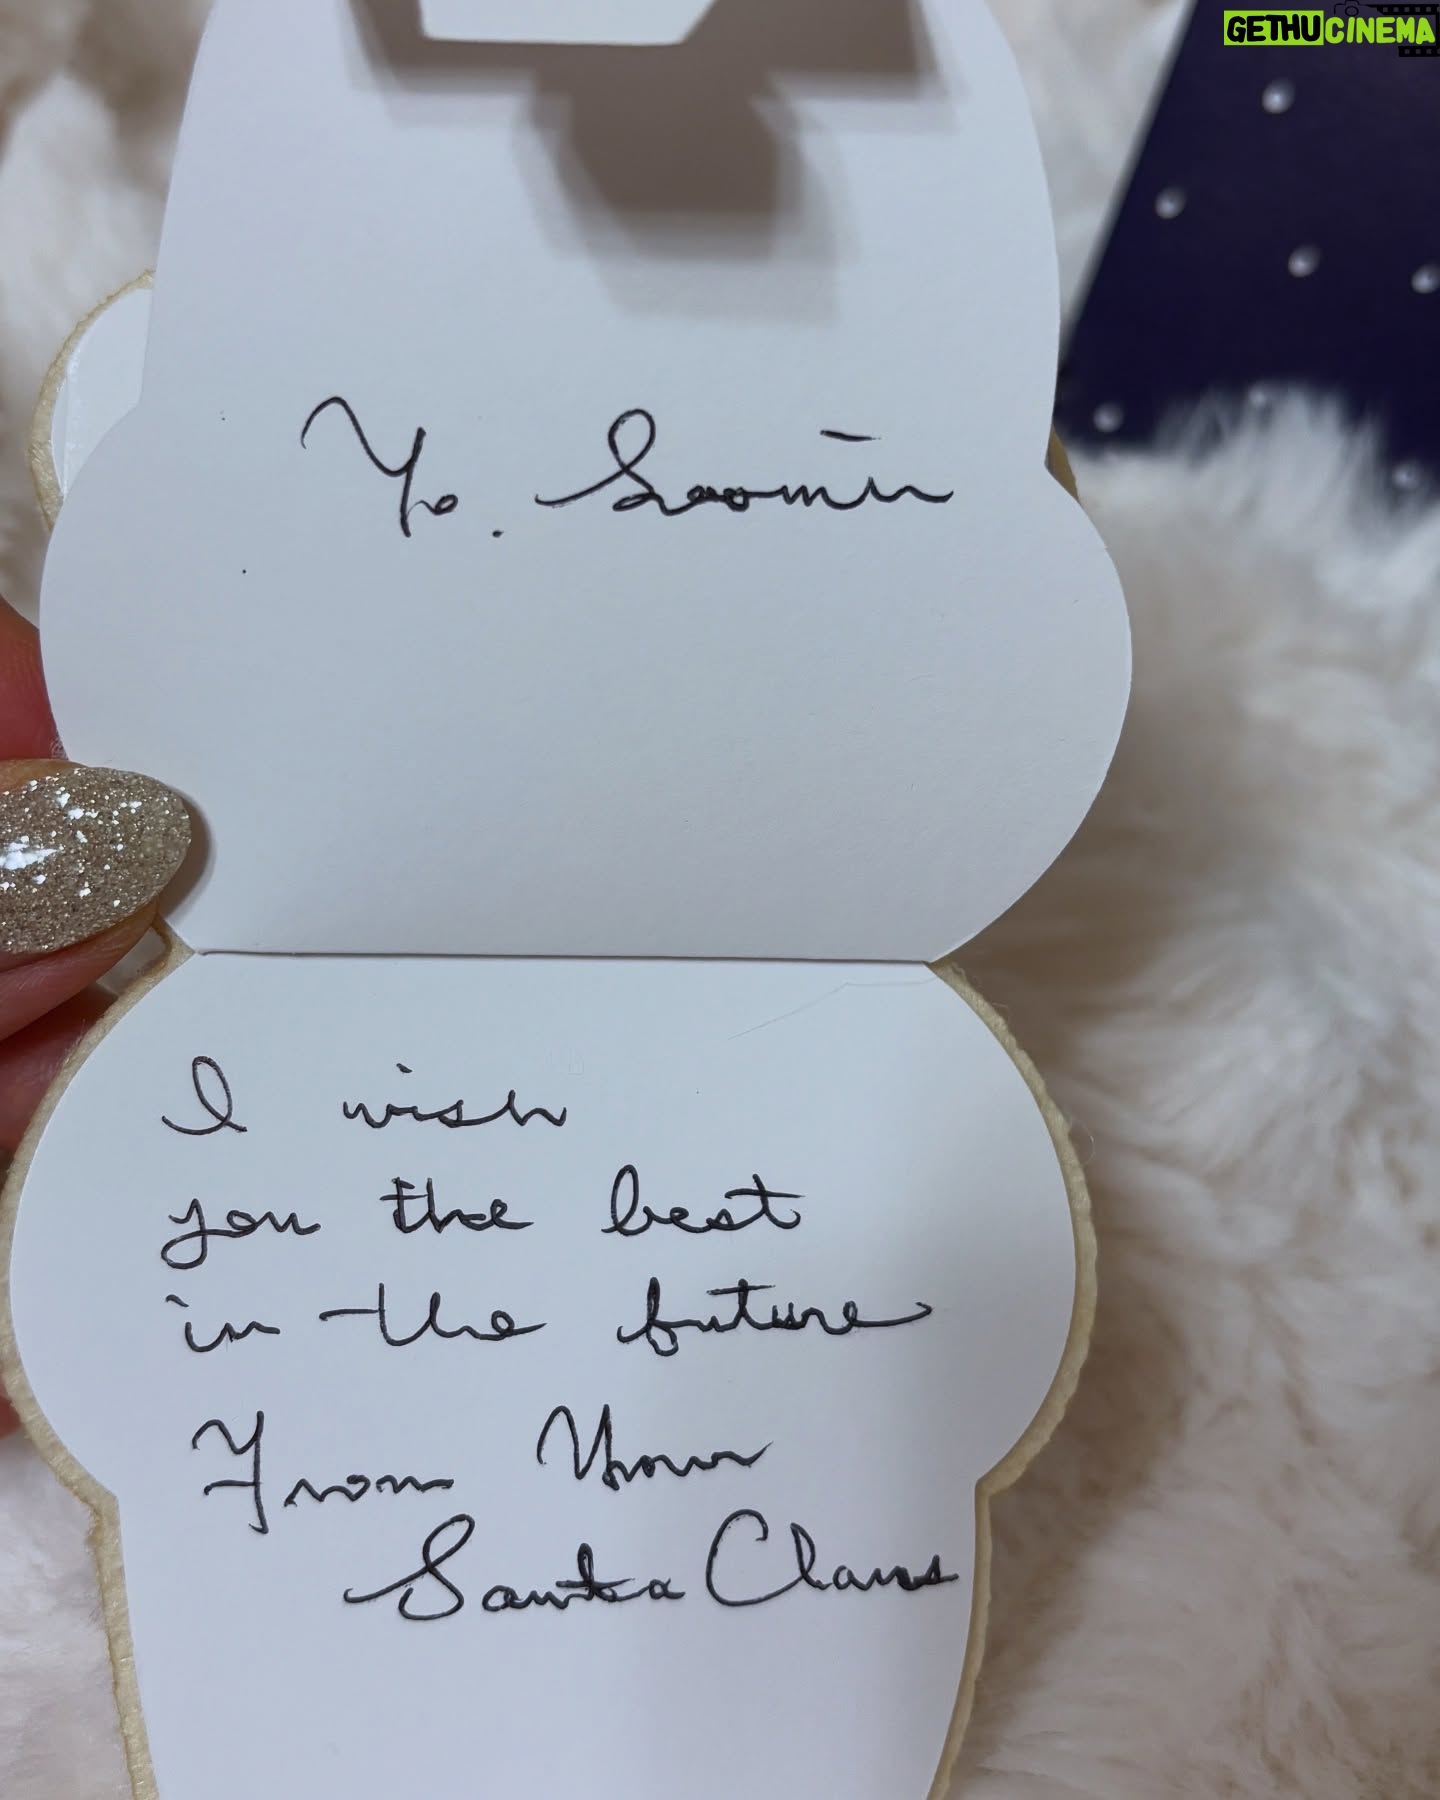 GETHUCINEMA
To. Soomin
I wish
you the best
in the future
From Your
Santa Claus